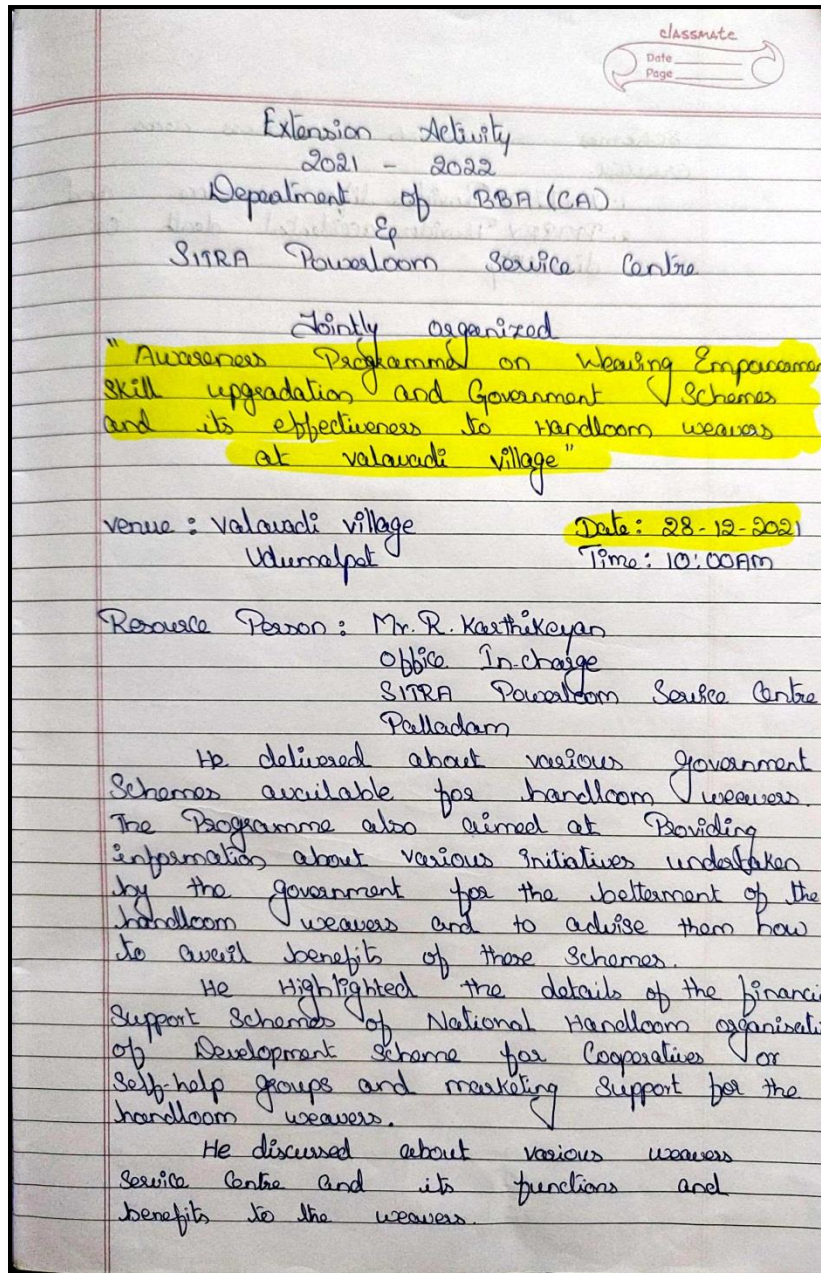 classmate
Date
Page
Extension Activity
2021 - 2022
Department of BBA (CA)
&
SITRA Powerloom Service Centre
Jointly organized
"Awareness Programme on Weaving Empowermen
Skill upgradation and Government Schemes
and its effectiveness to Handloom weavers
at valavadi village"
venue : valavadi village Date : 28-12-2021
Udumalpet Time : 10:00AM
Resource Person : Mr. R. Karthikeyan
Office In-charge
SITRA Powerloom Service Centre
Palladam
He delivered about various government
Schemes available for handloom weavers.
The Programme also aimed at Providing
information about various initiatives undertaken
by the government for the betterment of the
handloom weavers and to advise them how
to avail benefits of these schemes.
He Highlighted the details of the financi
Support Schemes of National Handloom organisati
of Development Scheme for Cooperatives or
Self-help groups and marketing Support for the
handloom weavers.
He discussed about various weavers
Service Centre and its functions and
benefits to the weavers.